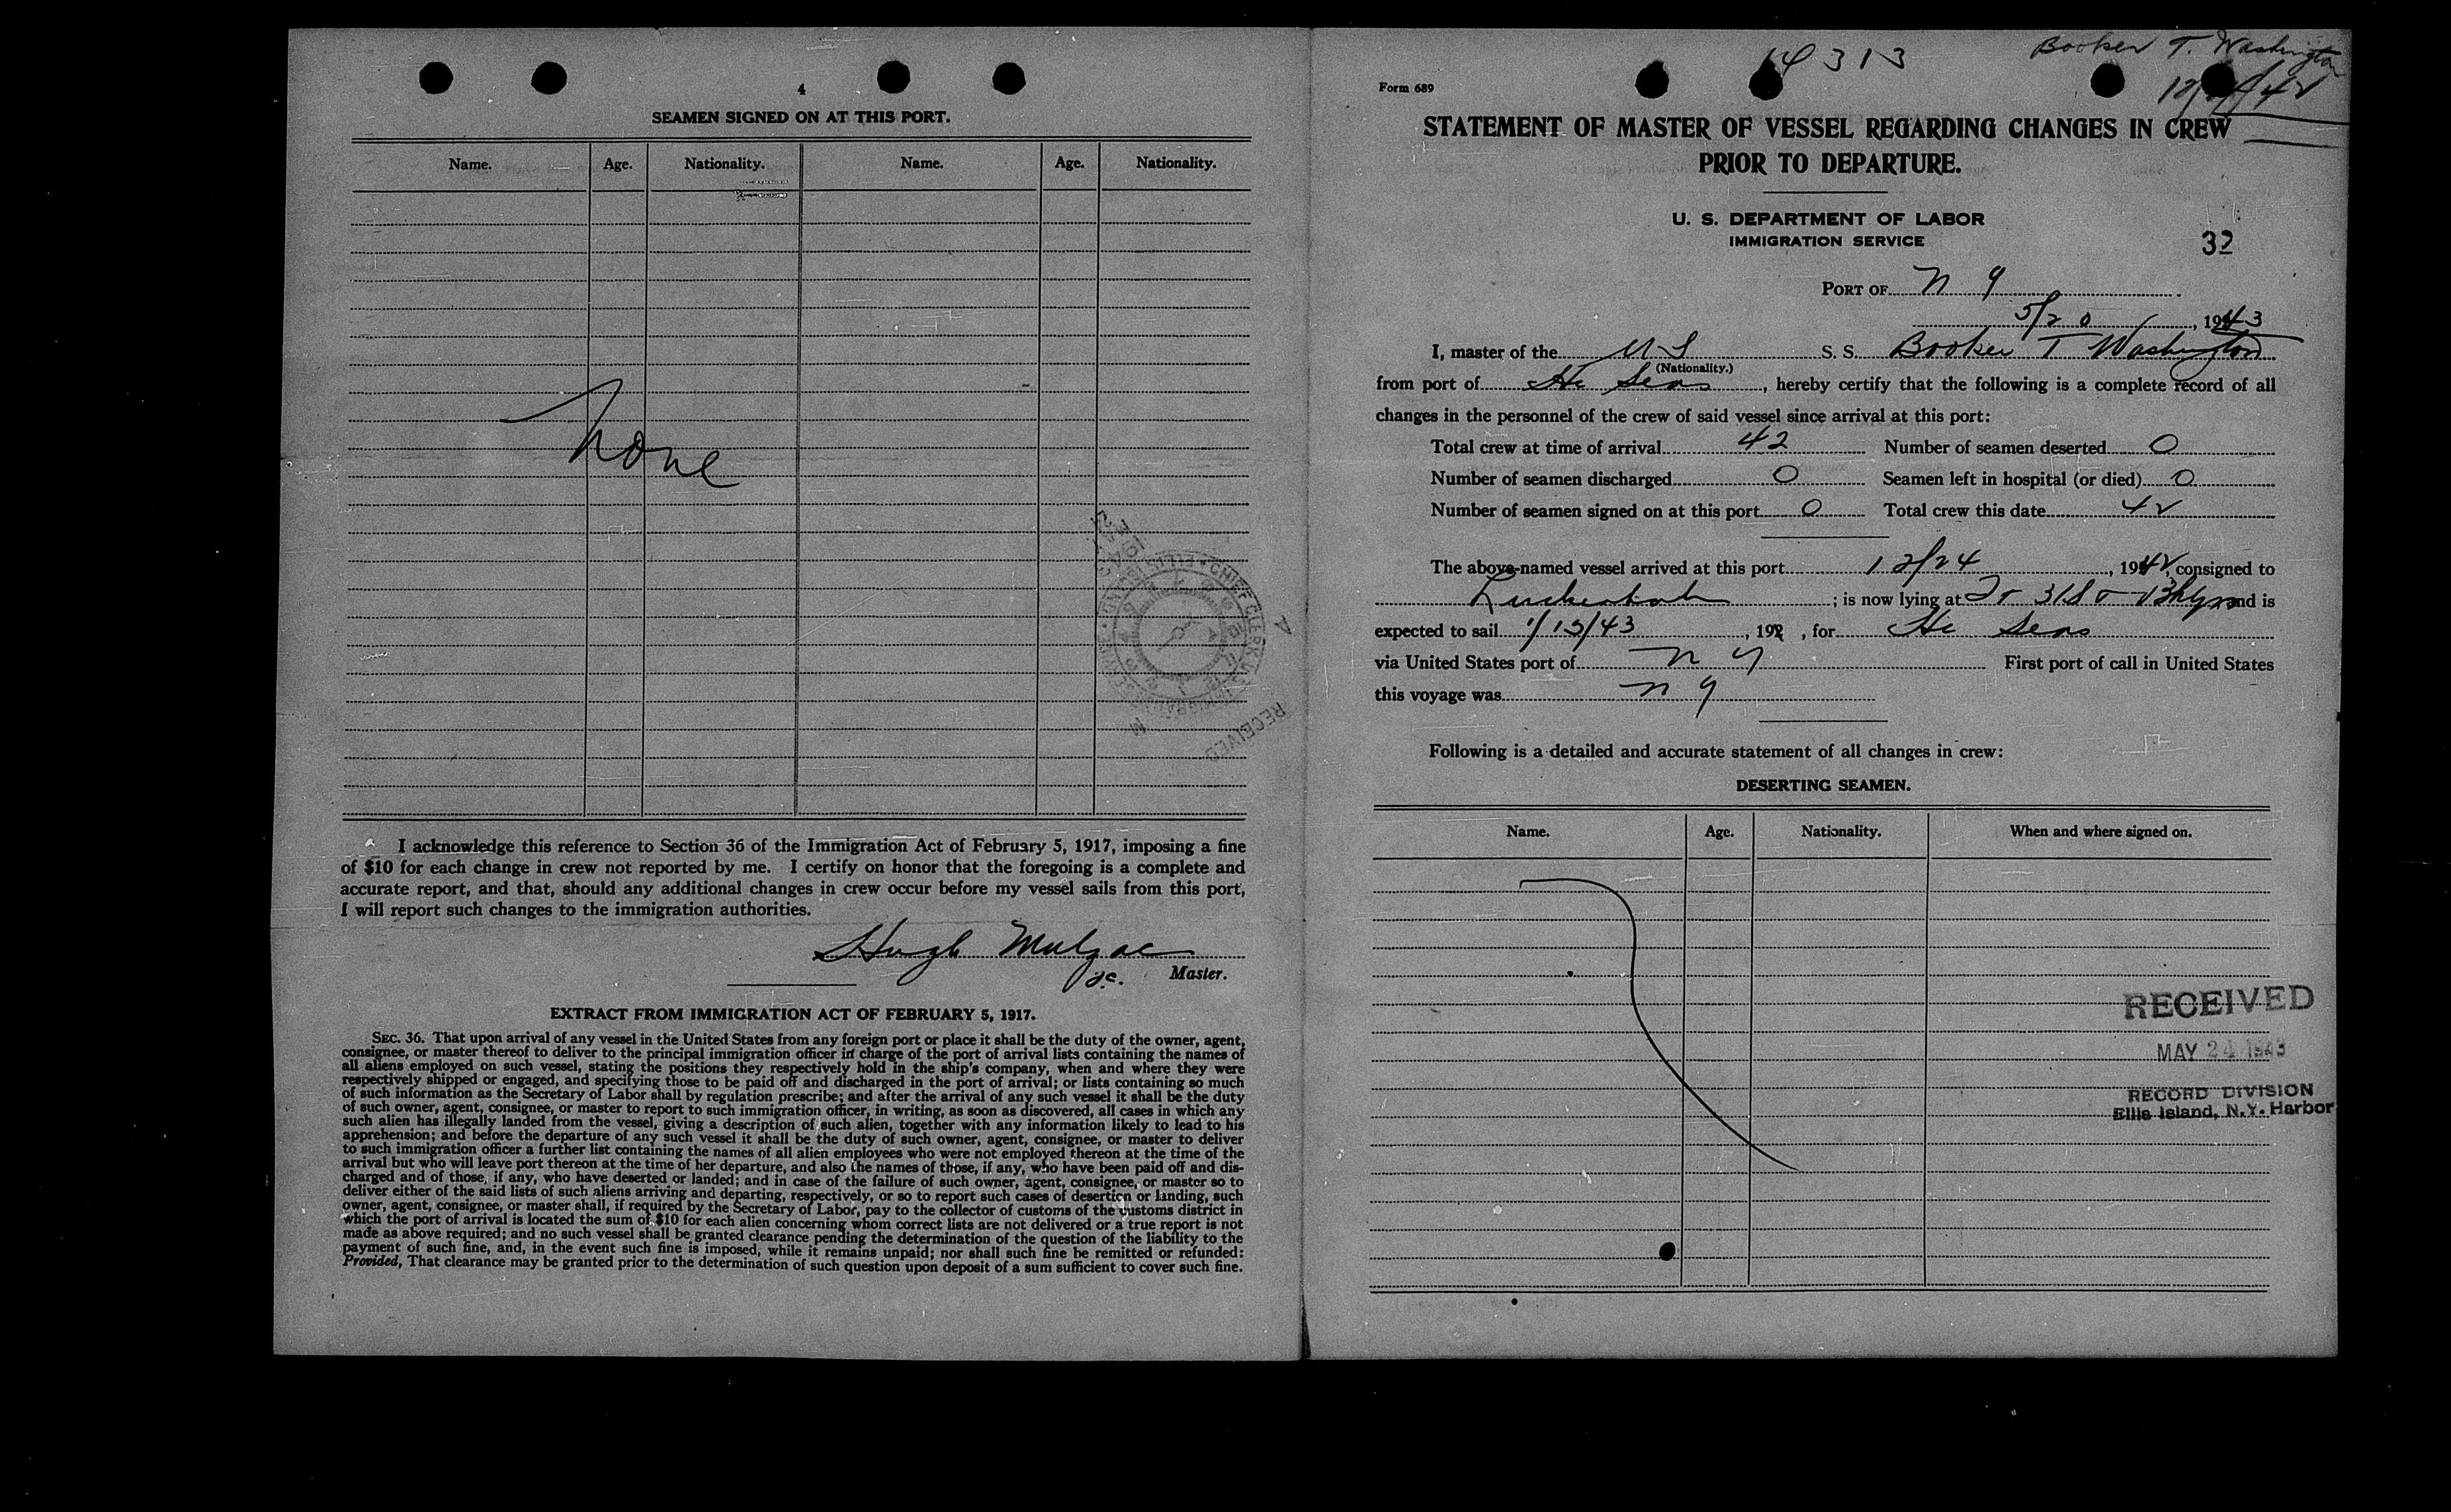 4
SEAMEN SIGNED ON AT THIS PORT.
Name. Age. Nationality. Name. Age. Nationality.
none
1943
CHIEF CLERK
RECEIVED
I acknowledge this reference to Section 36 of the Immigration Act of February 5, 1917, imposing a fine
of $10 for each change in crew not reported by me. I certify on honor that the foregoing is a complete and
accurate report, and that, should any additional changes in crew occur before my vessel sails from this port,
I will report such changes to the immigration authorities.
Hugh Mulzac
Master.
EXTRACT FROM IMMIGRATION ACT OF FEBRUARY 5, 1917.
SEC. 36. That upon arrival of any vessel in the United States from any foreign port or place it shall be the duty of the owner, agent,
consignee, or master thereof to deliver to the principal immigration officer in charge of the port of arrival lists containing the names of
all aliens employed on such vessel, stating the positions they respectively hold in the ship's company, when and where they were
respectively shipped or engaged, and specifying those to be paid off and discharged in the port of arrival; or lists containing so much
of such information as the Secretary of Labor shall by regulation prescribe; and after the arrival of any such vessel it shall be the duty
of such owner, agent, consignee, or master to report to such immigration officer, in writing, as soon as discovered, all cases in which any
such alien has illegally landed from the vessel, giving a description of such alien, together with any information likely to lead to his
apprehension; and before the departure of any such vessel it shall be the duty of such owner, agent, consignee, or master to deliver
to such immigration officer a further list containing the names of all alien employees who were not employed thereon at the time of the
arrival but who will leave port thereon at the time of her departure, and also the names of those, if any, who have been paid off and dis-
charged and of those, if any, who have deserted or landed; and in case of the failure of such owner, agent, consignee, or master so to
deliver either of the said lists of such aliens arriving and departing, respectively, or so to report such cases of desertion or landing, such
owner, agent, consignee, or master shall, if required by the Secretary of Labor, pay to the collector of customs of the customs district in
which the port of arrival is located the sum of $10 for each alien concerning whom correct lists are not delivered or a true report is not
made as above required; and no such vessel shall be granted clearance pending the determination of the question of the liability to the
payment of such fine, and, in the event such fine is imposed, while it remains unpaid; nor shall such fine be remitted or refunded:
Provided, That clearance may be granted prior to the determination of such question upon deposit of a sum sufficient to cover such fine.
14313
Booker T. Washington
12/24/42
Form 689
STATEMENT OF MASTER OF VESSEL REGARDING CHANGES IN CREW
PRIOR TO DEPARTURE.
U. S. DEPARTMENT OF LABOR
IMMIGRATION SERVICE
32
PORT OF N Y
5/20, 1943
I, master of the U S S. S. Booker T Washington
(Nationality.)
from port of Hi Seas, hereby certify that the following is a complete record of all
changes in the personnel of the crew of said vessel since arrival at this port:
Total crew at time of arrival 42 Number of seamen deserted 0
Number of seamen discharged 0 Seamen left in hospital (or died) 0
Number of seamen signed on at this port 0 Total crew this date 42
The above-named vessel arrived at this port 12/24, 1942, consigned to
Luckenbach; is now lying at 31 St Bklyn and is
expected to sail 1/13/43, 192 , for Hi Seas
via United States port of N Y First port of call in United States
this voyage was N Y
Following is a detailed and accurate statement of all changes in crew:
DESERTING SEAMEN.
Name. Age. Nationality. When and where signed on.
RECEIVED
MAY 24 1943
RECORD DIVISION
Ellis Island, N.Y. Harbor